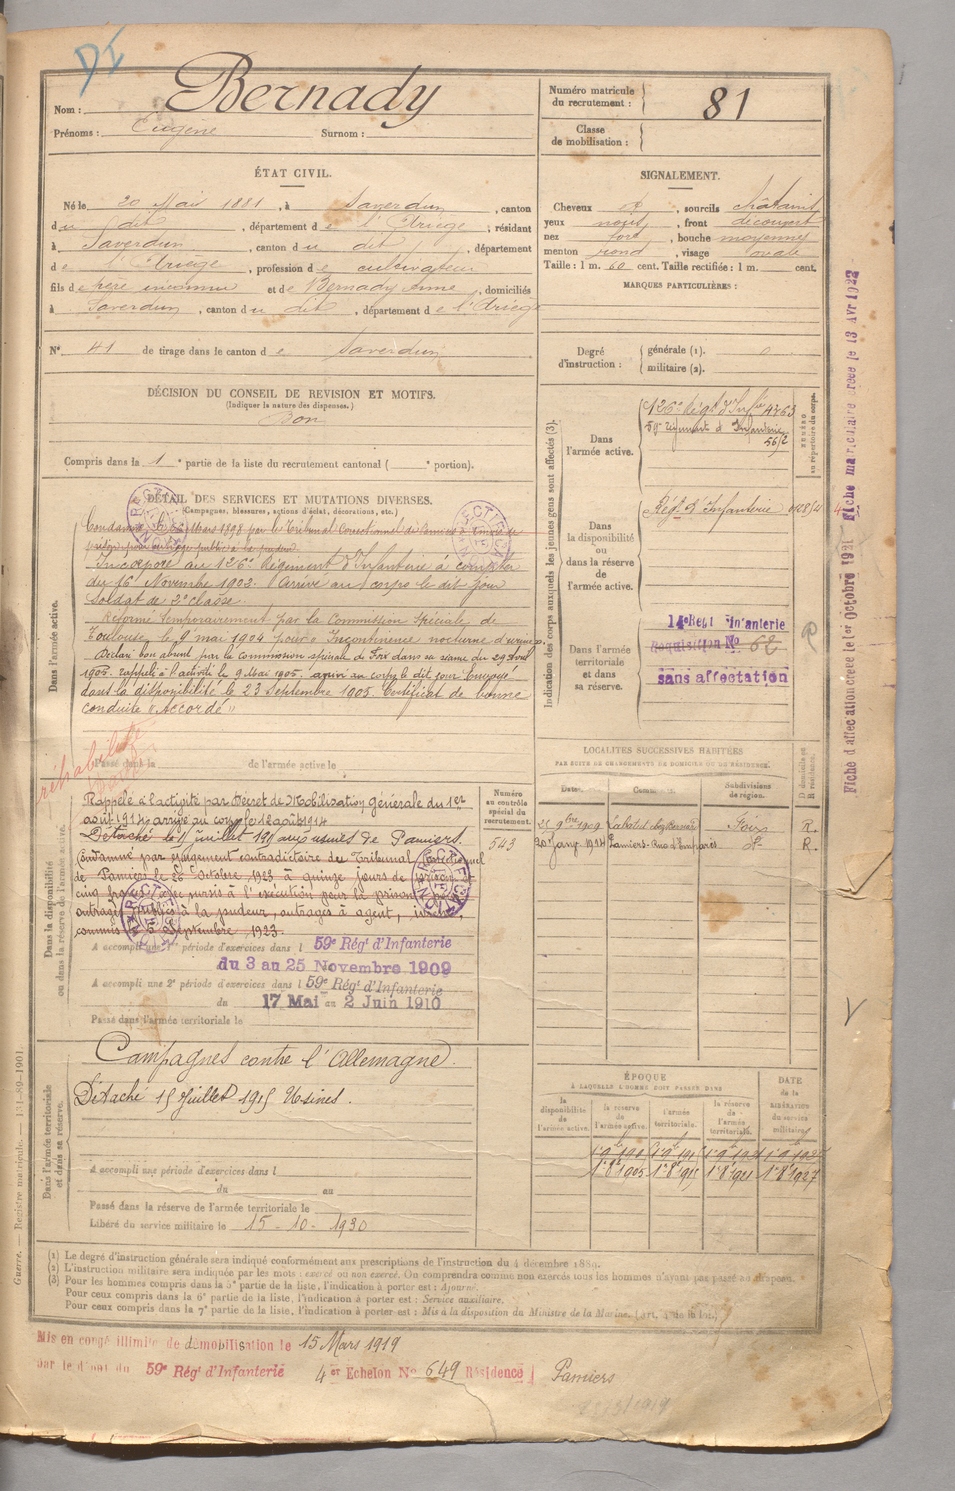 DI
Nom : Bernady
Prénoms : Eugène Surnom :
Numéro matricule
du recrutement : 81
Classe
de mobilisation :
ÉTAT CIVIL.
Né le 20 Mai 1881, à Saverdun, canton
du dit, département de l'Ariège, résidant
à Saverdun, canton du dit, département
de l'Ariège, profession de cultivateur
fils de père inconnu et de Bernady Anne, domiciliés
à Saverdun, canton du dit, département de l'Ariège
N° 41 de tirage dans le canton de Saverdun
SIGNALEMENT.
Cheveux, sourcils châtains
yeux noirs, front découvert
nez fort, bouche moyenne
menton rond, visage ovale
Taille : 1 m. 60 cent. Taille rectifiée : 1 m. cent.
MARQUES PARTICULIÈRES :
Degré
d'instruction :
générale (1). 0
militaire (2).
DÉCISION DU CONSEIL DE REVISION ET MOTIFS.
(Indiquer la nature des dispenses.)
Bon
Compris dans la 1e partie de la liste du recrutement cantonal ( e portion).
DÉTAIL DES SERVICES ET MUTATIONS DIVERSES.
(Campagnes, blessures, actions d'éclat, décorations, etc.)
Dans l'armée active.
Condamné le Mars 1898 par le Tribunal Correctionnel de Pamiers à de
prison pour outrage public à la pudeur.
Incorporé au 126e Régiment d'Infanterie à compter
du 16 Novembre 1902. Arrivé au corps le dit jour
Soldat de 2e classe.
Réformé temporairement par la Commission Spéciale de
Toulouse, le 9 mai 1904 pour "Incontinence nocturne d'urine".
Déclaré bon absent par la commission spéciale de Foix dans sa séance du 29 Avril
1905. rappelé à l'activité le 9 Mai 1905. au corps le dit jour Envoyé
dans la disponibilité le 23 Septembre 1905. Certificat de bonne
conduite "Accordé"
réhabilité
Passé dans la de l'armée active le
Indication des corps auxquels les jeunes gens sont affectés (3).
NUMÉRO
au répertoire du corps.
Dans
l'armée active.
126e Régt d'Infie 4763
59e régiment d'Infanterie
Dans
la disponibilité
ou
dans la réserve
de
l'armée active.
Régt d'Infanterie
Dans l'armée
territoriale
et dans
sa réserve.
14e Regt Infanterie
Requisition No 62
sans affectation
Fiche d'affectation créée le 1er Octobre 1921 Fiche matriculaire le 13 Avr 1922
LOCALITÉS SUCCESSIVES HABITÉES
PAR SUITE DE CHANGEMENTS DE DOMICILE OU DE RÉSIDENCE.
Dates. Communes. Subdivisions
de région. D domicile ou
R résidence.
21 9bre 1909 Foix R.
20 janv. 1921 Pamiers - Rue R.
Dans la disponibilité
ou dans la réserve de l'armée active.
Numéro
au contrôle
spécial du
recrutement.
543
Rappelé à l'activité par Décret de Mobilisation générale du 1er
août 1914 arrivé au corps le 12 août 1914
Détaché le 15 juillet 1915 aux usines de Pamiers.
Condamné par jugement contradictoire du Tribunal correctionnel
de Pamiers le 26 Octobre 1923 à quinze jours de prison et
cinq francs avec sursis à l'exécution pour la prison
outrages publics à la pudeur, outrages à agent,
commis Septembre 1923.
A accompli une 1re période d'exercices dans l 59e Régt d'Infanterie
du 3 au 25 Novembre 1909
A accompli une 2e période d'exercices dans l 59e Régt d'Infanterie
du 17 Mai au 2 Juin 1910
Passé dans l'armée territoriale le
Dans l'armée territoriale
et dans sa réserve.
Campagnes contre l'Allemagne
Détaché 15 Juillet 1915 Usines.
A accompli une période d'exercices dans l
du au
Passé dans la réserve de l'armée territoriale le
Libéré du service militaire le 15 - 10 - 1930
ÉPOQUE
À LAQUELLE L'HOMME DOIT PASSER DANS
la
disponibilité
de
l'armée active.
la réserve
de
l'armée active.
l'armée
territoriale.
la réserve
de
l'armée
territoriale.
DATE
de la
LIBÉRATION
du service
militaire.
1er 8bre 1905 1er 8bre 1911 1er 8bre 1921 1er 8bre 1927
(1) Le degré d'instruction générale sera indiqué conformément aux prescriptions de l'instruction du 4 décembre 1889.
(2) L'instruction militaire sera indiquée par les mots : exercé ou non exercé. On comprendra comme non exercés tous les hommes n'ayant pas passé au drapeau.
(3) Pour les hommes compris dans la 5e partie de la liste, l'indication à porter est : Ajourné.
Pour ceux compris dans la 6e partie de la liste, l'indication à porter est : Service auxiliaire.
Pour ceux compris dans la 7e partie de la liste, l'indication à porter est : Mis à la disposition du Ministre de la Marine. (art. 4 de la loi.)
Guerre. — Registre matricule. — 131-89-1901.
Mis en congé illimité de démobilisation le 15 Mars 1919
par le dépôt du 59e Régt d'Infanterie 4er Echelon No 649 Résidence Pamiers